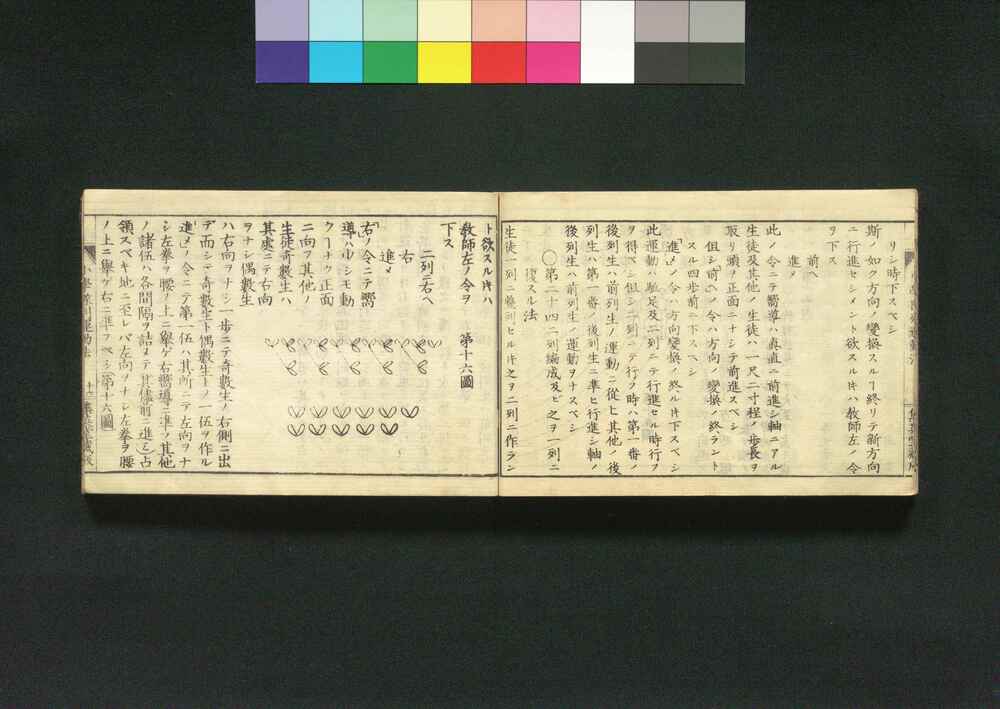 リシ時下スベシ
斯ノ如ク方向ノ變換スルヿ終リテ新方向
ニ行進セシメント欲スル𪜈ハ教師左ノ令
ヲ下ス
前ヘ
進メ
此ノ令ニテ嚮導ハ眞直ニ前進シ軸ニアル
生徒及其他ノ生徒ハ一尺二寸程ノ歩長ヲ
取リ頭ヲ正面ニナシテ前進スベシ
但シ「前ヘ」ノ令ハ方向ノ變換ノ終ラント
スル四歩前ニ下スベシ
「進メ」ノ令ハ方向變換ノ終ル𪜈下スベシ
此運動ハ駈足及二列ニテ行進セル時行フ
ヲ得ベシ但シ二列ニテ行フ時ハ第一番ノ
後列生ハ前列生ノ運動ニ從ヒ其他ノ後
列生ハ第一番ノ後列生ニ準ヒ行進シ軸ノ
後列生ハ前列生ノ運動ヲナスベシ
○第二十四二列編成及ヒ之ヲ一列ニ
復スル法
生徒一列ニ整列セル𪜈之ヲ二列ニ作ラン
ト欲スル𪜈ハ
教師左ノ令ヲ
下ス
二列ニ右ヘ
右
進メ
「右」ノ令ニテ嚮
導ハ少シモ動
クヿナク正面
ニ向フ其他ノ
生徒奇數生ハ
其處ニテ右向
ヲナシ偶數生
第十六圖
ハ右向ヲナシ一歩ニテ奇數生ノ右側ニ出
デ而シテ奇數生ト偶數生トノ一伍ヲ作ル
「進メ」ノ令ニテ第一伍ハ其所ニテ左向ヲナ
シ左拳ヲ腰ノ上ニ擧ゲ右嚮導ニ準ヒ其他
ノ諸伍ハ各間隔ヲ詰メテ其儘前ニ進ミ占
領スベキ地ニ至レバ左向ヲナシ左拳ヲ腰
ノ上ニ擧ゲ右ニ準フベシ第十六圖